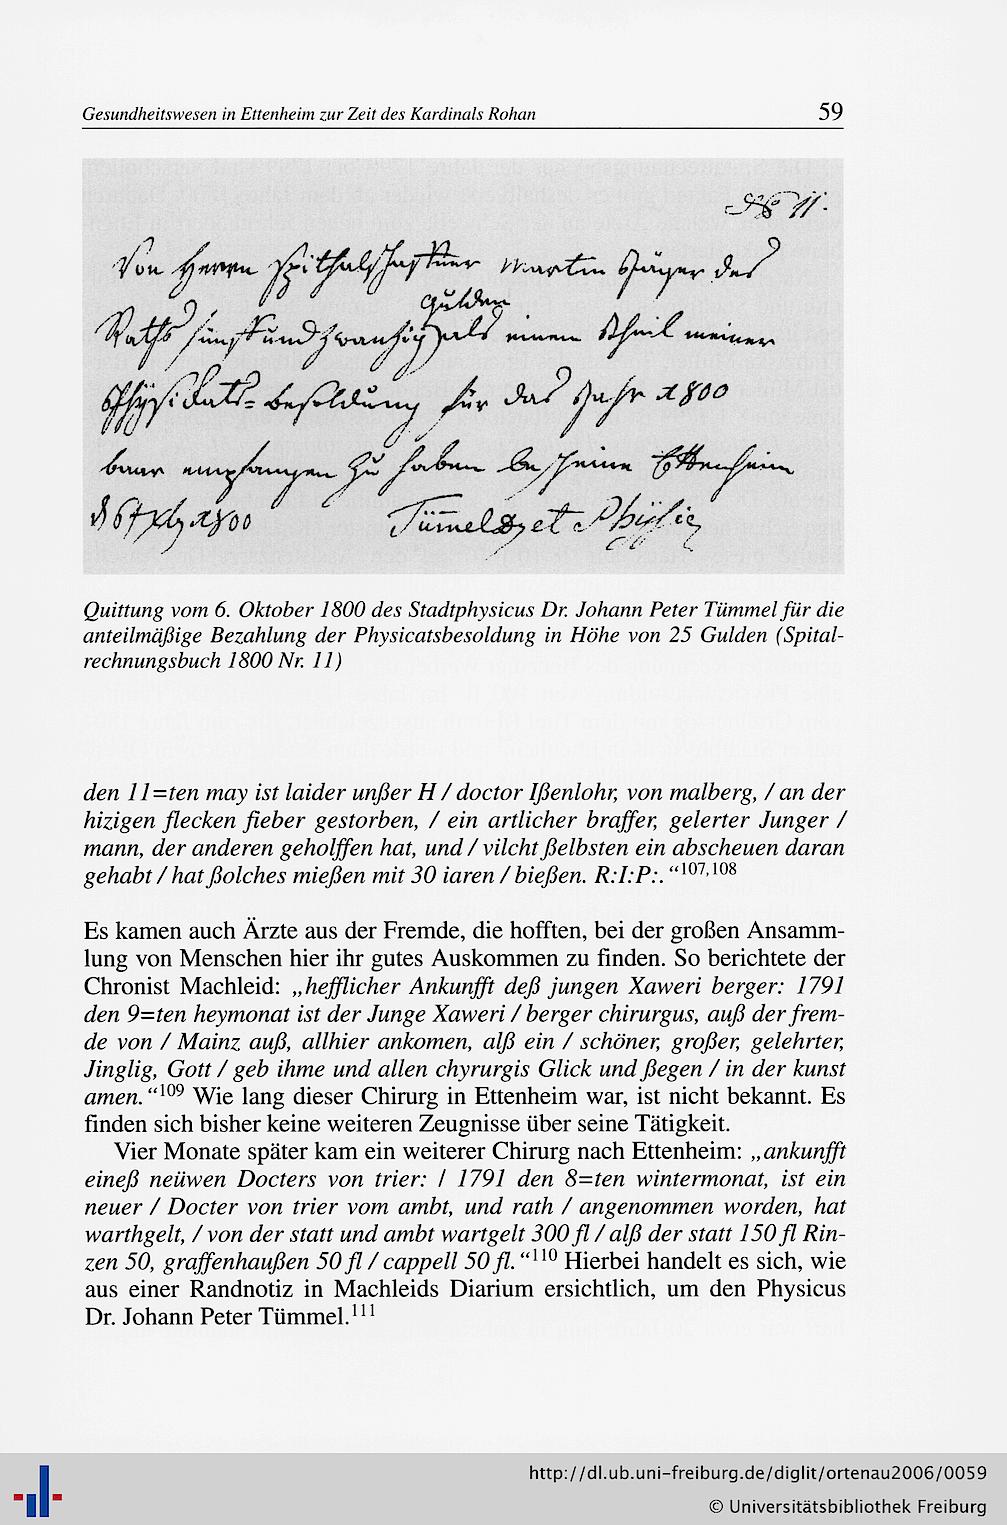 Gesundheitswesen in Ettenheim zur Zeit des Kardinals Rohan 59
No 11.
Von Herrn Spithalschaffner Martin Jäger des
Gulden
Raths fünffundzwanzig als einen Theil meiner
Physicats-besoldung für das Jahr 1800
baar empfangen zu haben bescheine Ettenheim
d 6t 1800 Tümmel et Physic
Quittung vom 6. Oktober 1800 des Stadtphysicus Dr. Johann Peter Tümmel für die
anteilmäßige Bezahlung der Physicatsbesoldung in Höhe von 25 Gulden (Spital-
rechnungsbuch 1800 Nr. 11)
den 11=ten may ist laider unßer H / doctor Ißenlohr, von malberg, / an der
hizigen flecken fieber gestorben, / ein artlicher braffer, gelerter Junger /
mann, der anderen geholffen hat, und / vilcht ßelbsten ein abscheuen daran
gehabt / hat ßolches mießen mit 30 iaren / bießen. R:I:P:.“107,108
Es kamen auch Ärzte aus der Fremde, die hofften, bei der großen Ansamm-
lung von Menschen hier ihr gutes Auskommen zu finden. So berichtete der
Chronist Machleid: „hefflicher Ankunfft deß jungen Xaweri berger: 1791
den 9=ten heymonat ist der Junge Xaweri / berger chirurgus, auß der frem-
de von / Mainz auß, allhier ankomen, alß ein / schöner, großer, gelehrter,
Jinglig, Gott / geb ihme und allen chyrurgis Glick und ßegen / in der kunst
amen.“109 Wie lang dieser Chirurg in Ettenheim war, ist nicht bekannt. Es
finden sich bisher keine weiteren Zeugnisse über seine Tätigkeit.
Vier Monate später kam ein weiterer Chirurg nach Ettenheim: „ankunfft
eineß neüwen Docters von trier: / 1791 den 8=ten wintermonat, ist ein
neuer / Docter von trier vom ambt, und rath / angenommen worden, hat
warthgelt, / von der statt und ambt wartgelt 300 fl / alß der statt 150 fl Rin-
zen 50, graffenhaußen 50 fl / cappell 50 fl.“110 Hierbei handelt es sich, wie
aus einer Randnotiz in Machleids Diarium ersichtlich, um den Physicus
Dr. Johann Peter Tümmel.111
http://dl.ub.uni-freiburg.de/diglit/ortenau2006/0059
© Universitätsbibliothek Freiburg